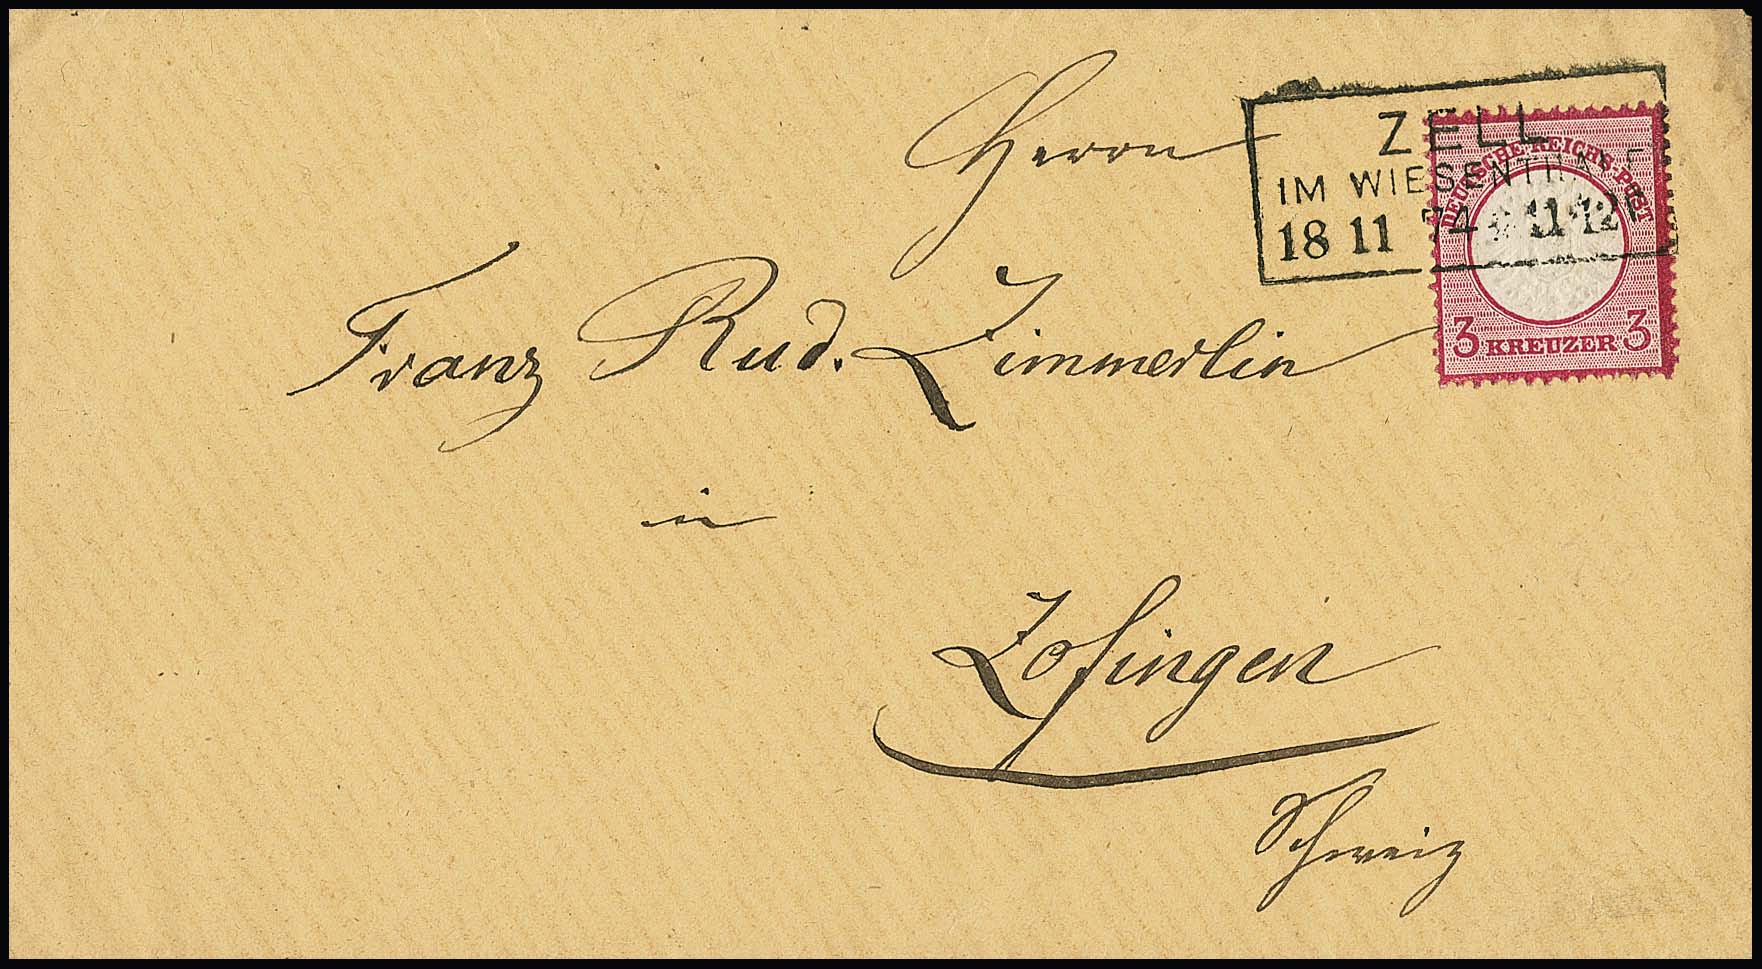 Herrn
Franz Rud. Zimmerlin
in
Zofingen
Schweiz
ZELL
IM WIESENTHALE
18 11 74 11-12V
DEUTSCHE REICHS-POST
3 KREUZER 3